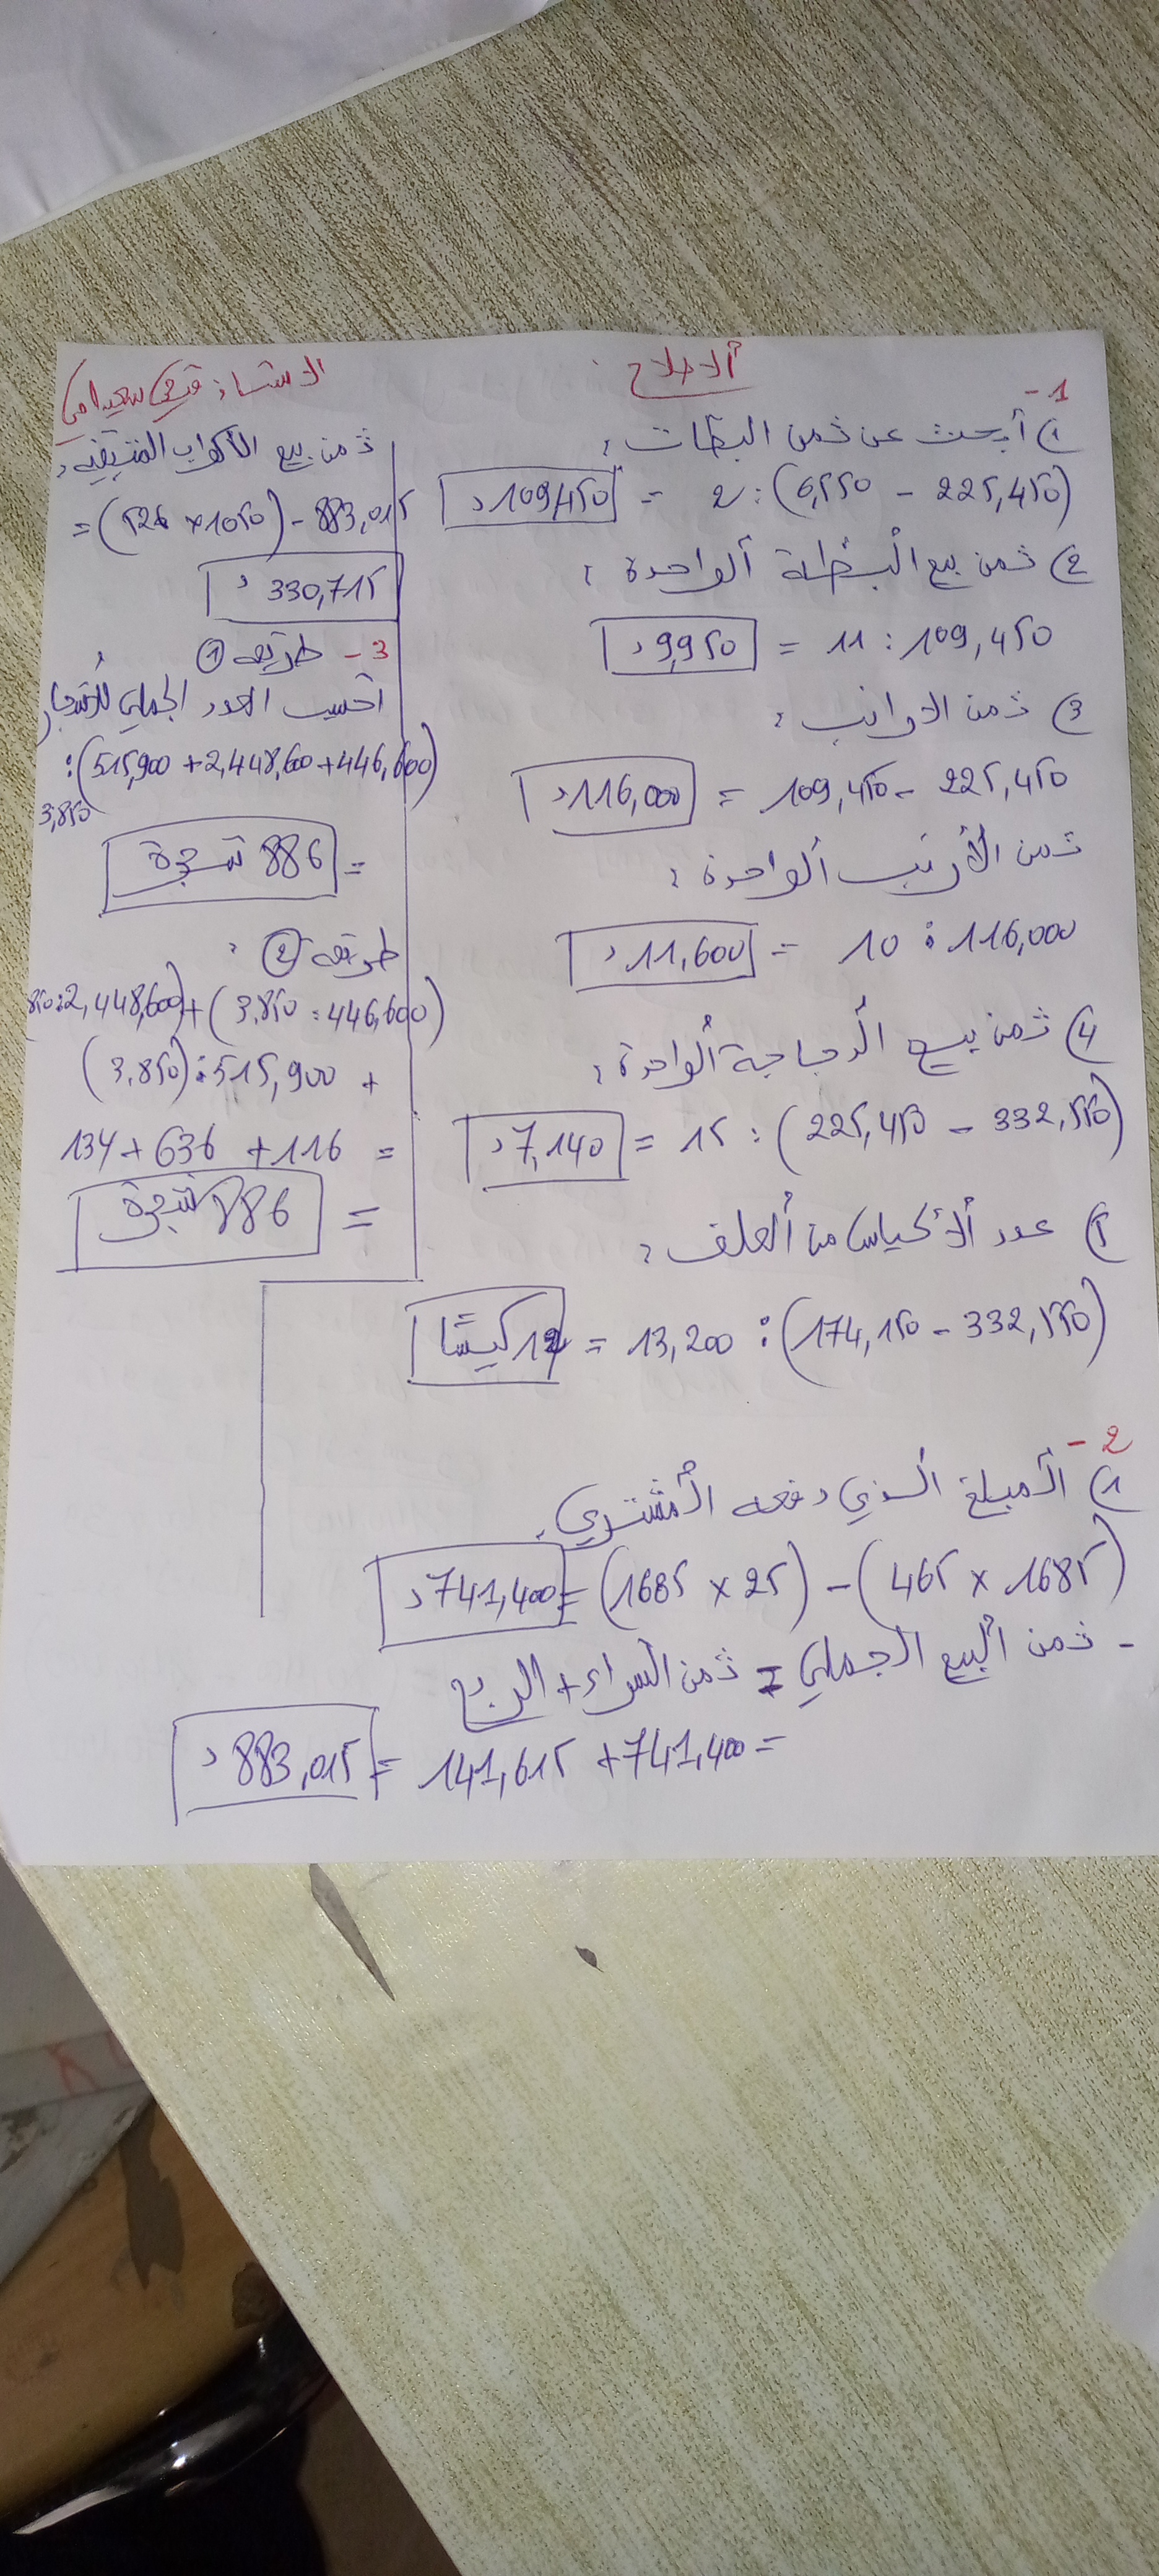 ألاصلاح
1 -
1) أبحث عن ثمن البطات :
(225,450 - 6,550) : 2 = 109,450 د
2) ثمن بيع ألبطة ألواحدة :
109,450 : 11 = 9,950 د
3) ثمن الارانب :
225,450 - 109,450 = 116,000 د
ثمن الأرنب ألواحدة :
116,000 : 10 = 11,600 د
4) ثمن بيع ألدجاجة ألواحدة :
(332,550 - 225,450) : 15 = 7,140 د
5) عدد ألأكياس من ألعلف :
(332,550 - 174,150) : 13,200 = 12 كيسًا
2 -
1) ألمبلغ ألذي دفعه ألمشتري :
(1685 x 465) - (25 x 1685) = 741,400 د
- ثمن ألبيع الجملي = ثمن الشراء + الربح
= 741,400 + 141,615 = 883,015 د
الاستاذ :
ثمن بيع الأكواب المتبقية :
883,015 - (1050 x 526) =
330,715 د
3 - طريقة 1
أحسب العدد الجملي للأشجار
(446,600 + 2,448,600 + 515,900) :
3,850
= 886 شجرة
طريقة 2 :
(446,600 : 3,850) + (2,448,600 : 850
+ 515,900 : (3,850)
= 116 + 636 + 134
= 886 شجرة